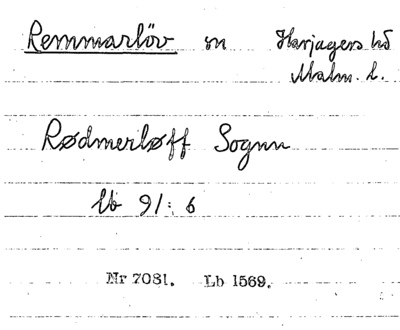 Remmarlöv sn Harjagers hd
Malm. l.
Rødmerløff Sognn
lb 91: 6
Nr 7081. Lb 1569.